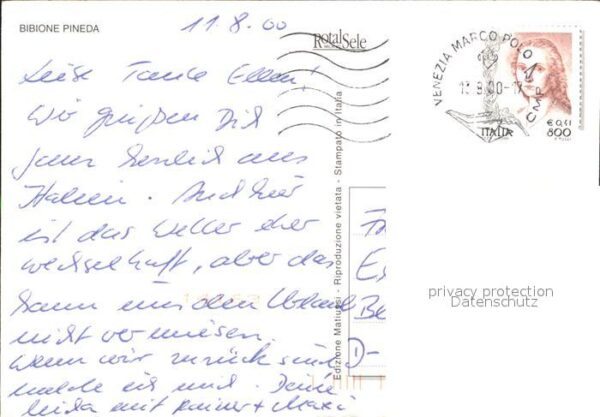 BIBIONE PINEDA
11.8.00
RotalSele
Liebe Tante Ellen!
Wir grüßen Dich
ganz herzlich aus
Italien. Auch hier
ist das Wetter eher
wechselhaft, aber das
kann uns den Urlaub
nicht vermiesen.
Wenn wir zurück sind
melde ich mich. Deine
mit Rainer + Maxi
Edizione Matiussi - Riproduzione vietata - Stampato in Italia
VENEZIA MARCO POLO
ITALIA
€ 0,41
800
privacy protection
Datenschutz
D-